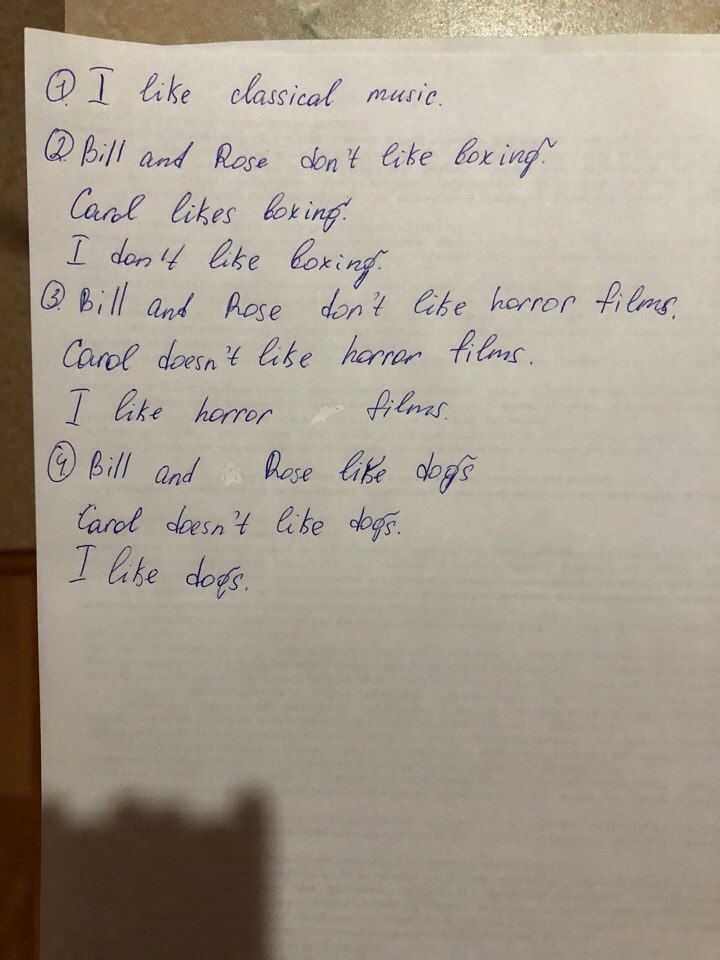 ① I like classical music.
② Bill and Rose don't like boxing.
Carol likes boxing.
I don't like boxing.
③ Bill and Rose don't like horror films.
Carol doesn't like horror films.
I like horror films.
④ Bill and Rose like dogs
Carol doesn't like dogs.
I like dogs.